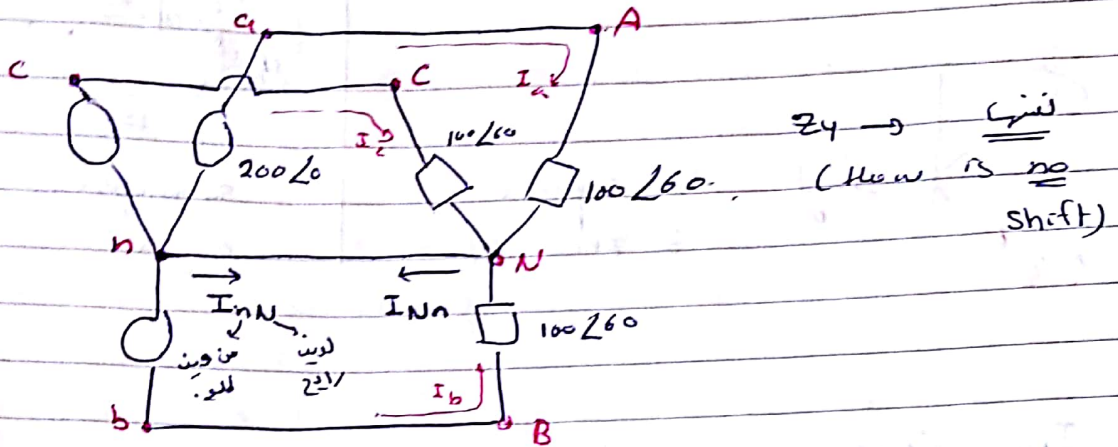 a
A
c
C
I_a
I_c
100∠60
200∠0
100∠60.
Z4 →
(How is no
shift)
n
N
I_nN
I_Nn
100∠60
من وين
لوين
رايح
I_b
b
B